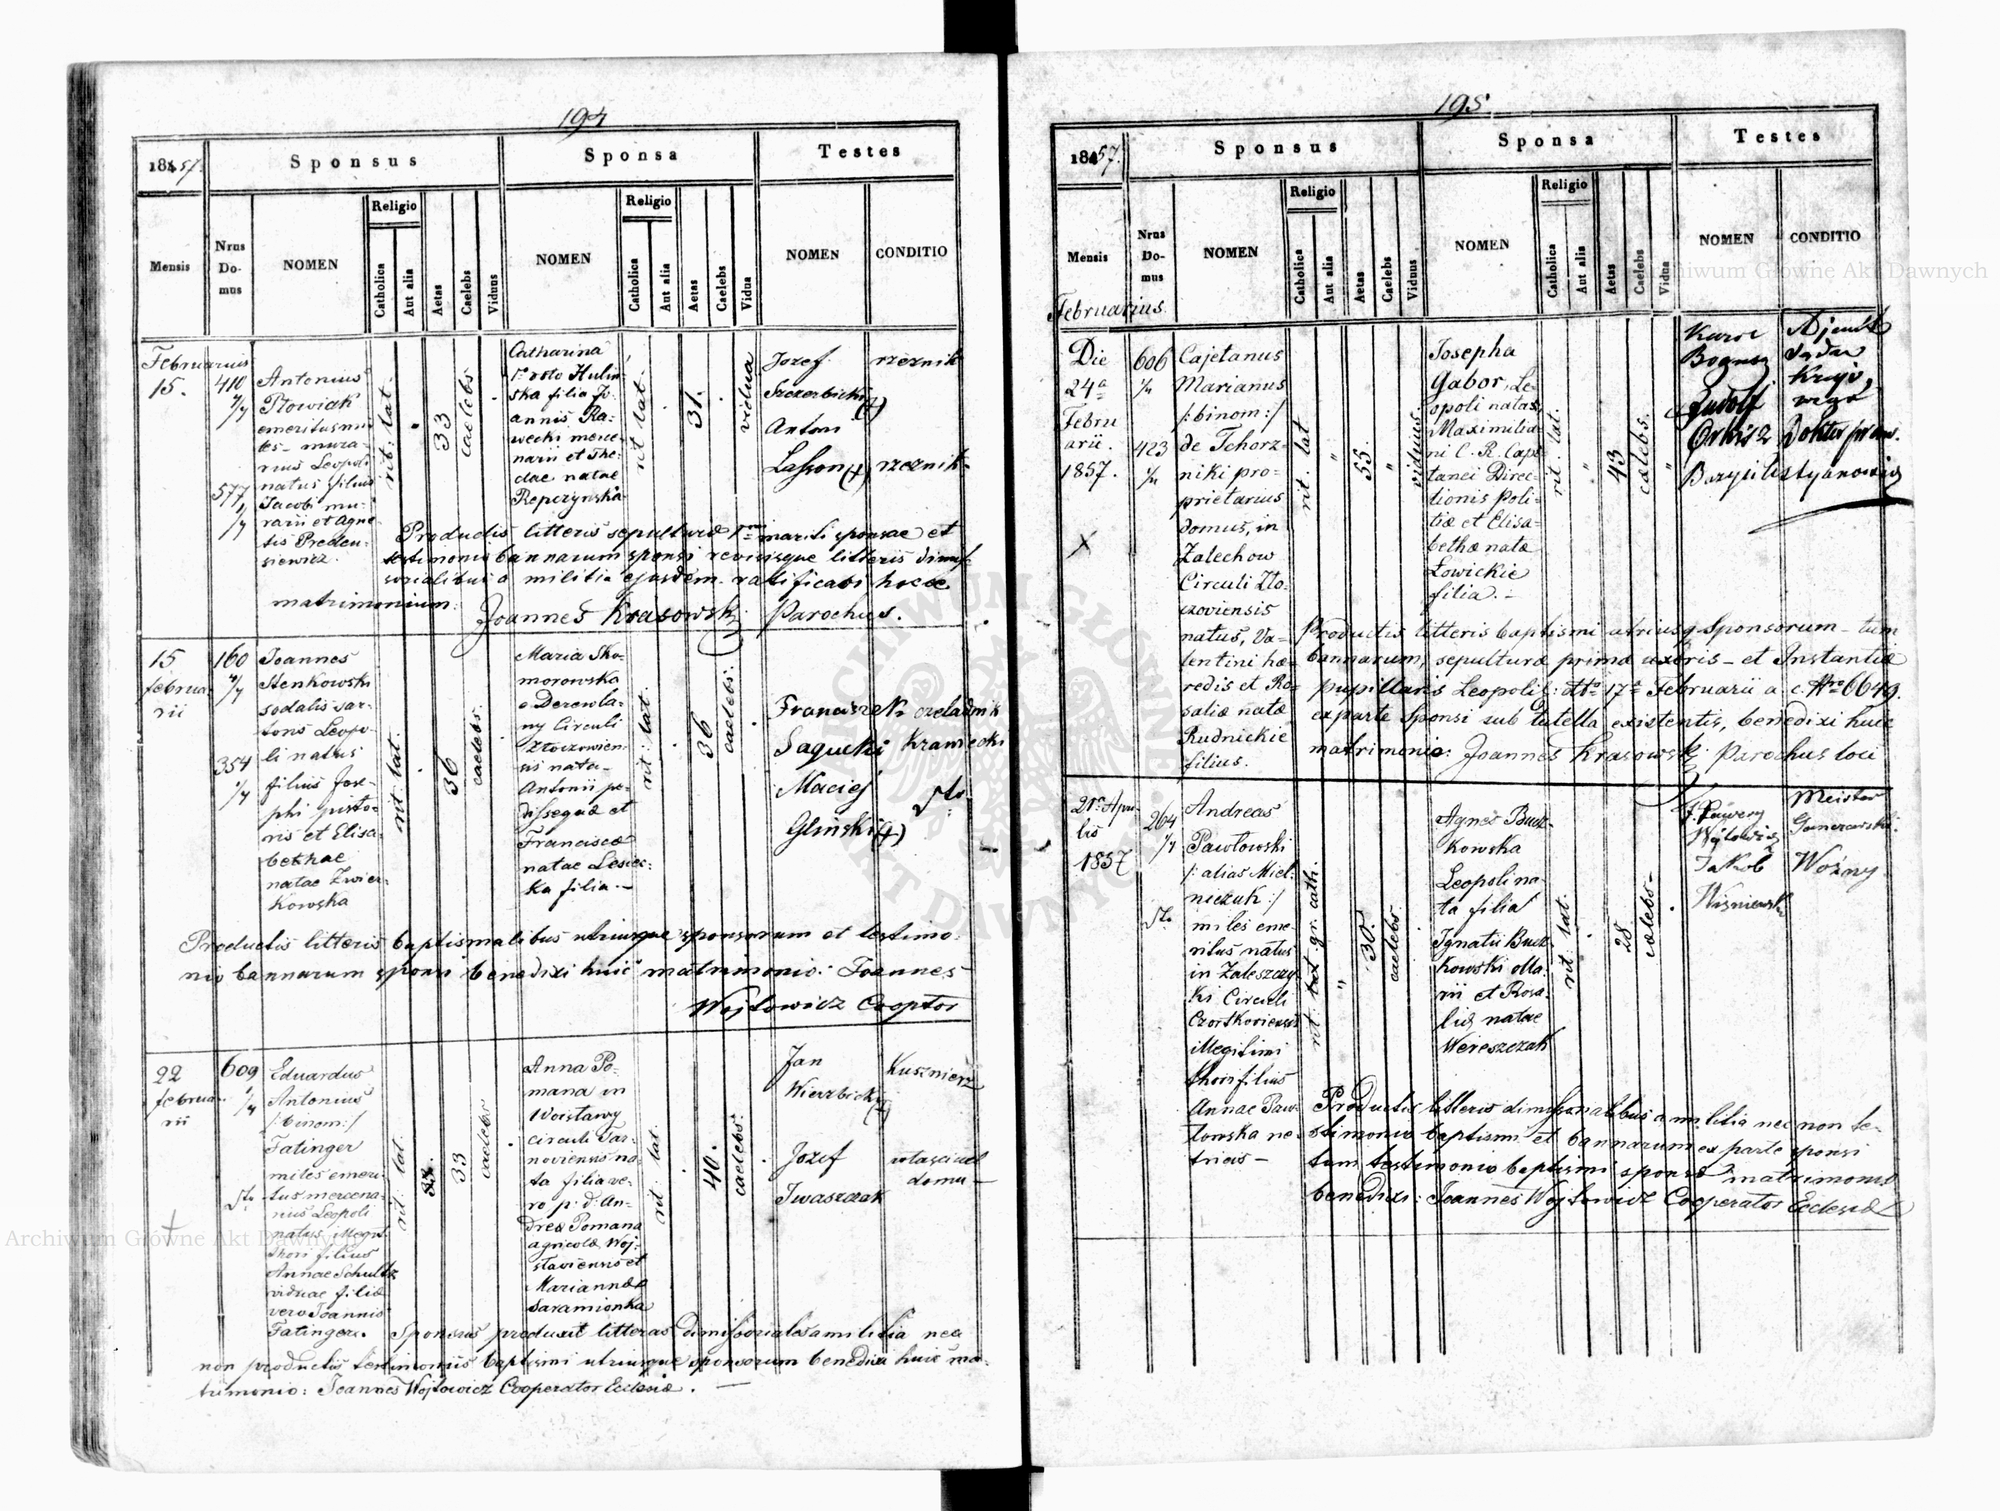 194
1857.
Sponsus
Sponsa
Testes
Mensis
Nrus Do- mus
NOMEN
Religio
Catholica
Aut alia
Aetas
Caelebs
Viduus
NOMEN
Religio
Catholica
Aut alia
Aetas
Caelebs
Vidua
NOMEN
CONDITIO
Februarius
15.
410
4/4
577
4/4
Antonius
Płowiak
emeritus mi-
les - mura-
rius Leopoli
natus filius
Jacobi mu-
rarii et Agne-
tis
siewicz.
rit: lat.
33
caelebs
Catharina
1º voto Hulin-
ska filia Jo-
annis Ra-
wecki merce-
narii et The-
clae natae
Repczynska
rit lat.
31.
vidua
Jozef
Szczerbicki (+)
Antoni
Lasson (+)
rzeznik
rzeznik
Productis litteris sepulturæ 1mi mariti sponsae et
testimonio bannorum sponsi revisisque litteris dimis-
sorialibus a militia ejusdem ratificavi hocce
matrimonium: Joannes Krasowski Parochus.
15
februa-
rii
160
4/4
354
1/4
Joannes
Stenkowski
sodalis sar-
tons Leopo-
li natus
filius Jose-
phi pisto-
ris et Elisa-
bethae
natae Zwier-
kowska
rit: lat.
36
caelebs.
Maria Sko-
morowska
e Derewla-
ny Circuli
Złoczowien-
sis nata
Antonii pe-
dissequæ et
Franciscæ
natae Lesiec-
ka filia.—
rit: lat.
36
caelebs:
Franciszek
Sagucki
Maciej
Glinski (+)
czeladnik
krawiecki
dto
Productis litteris baptismalibus utriusque sponsorum et testimo-
nio bannorum sponsi benedixi huic matrimonio: Joannes
Wojtowicz Cooptor
22
februa-
rii
609
1/4
dto
Eduardus
Antonius
/:binom:/
Fatinger
miles emeri-
tus mercena-
rius Leopoli
natus illegit.
thori filius
Annae Schultz
viduae filiæ
vero Joannis
Fatinger.
rit: lat.
33
caelebs
Anna Po-
mana in
Woistawy
circuli Tar-
noviensis na-
ta filia ve-
ro p: d: An-
dreæ Pomana
agricolæ Woj-
staviensis et
Mariannæ
Saramionka
rit: lat.
40.
caelebs:
Jan
Wierzbicki (+)
Jozef
Iwaszczak
Kusznierz
własciciel
domu —
Sponsus produxit litteras dimissoriales a militia nec
non productis testimoniis baptismi utriusque sponsorum benedixi huic ma-
trimonio: Joannes Wojtowicz Cooperator Ecclesiæ. —
195
1857.
Sponsus
Sponsa
Testes
Mensis
Nrus Do- mus
NOMEN
Religio
Catholica
Aut alia
Aetas
Caelebs
Viduus
NOMEN
Religio
Catholica
Aut alia
Aetas
Caelebs
Vidua
NOMEN
CONDITIO
Februarius
Die
24a
Febru
arii.
1857.
X
606
423
Cajetanus
Marianus
/:binom:/
de Tchorz-
niki pro-
prietarius
domus, in
Zalechow
Circuli Zło-
czoviensis
natus, Va-
lentini hæ-
redis et Ro-
saliæ natæ
Rudnickie
filius.
rit. lat.
"
55
"
viduus.
Josepha
Gabor, Le-
opoli nata,
Maximilia-
ni C. R. Capi-
tanei Direc-
tionis Poli-
tiæ et Elisa-
bethæ natæ
Łowickie
filia.—
rit. lat.
"
43
cælebs.
"
Karol
Bogusz
Rudolf
Orkisz
Bazyli Ilustyanowicz
Ajent
Sądu
Krajo-
wego
Doktor praw.
Productis litteris baptismi utriusq. Sponsorum - tum
bannorum, sepulturæ primæ uxoris - et Instantiæ
pupillaris Leopolis: dto 17a Februarii a. c. Nro 6649.
ex parte Sponsi sub tutella existentis, benedixi huic
matrimonio: Joannes Krasowski Parochus loci
21a Apri-
lis
1857
264
1/4
dto
Andreas
Pawłowski
/:alias Miel-
niczuk:/
miles eme-
ritus natus
in Zaleszczy-
ki Circuli
Czortkoviensis
illegitimi
thori filius
Annae Paw-
łowska ne-
tricis —
rit: gr. cath.
"
30.
caelebs
Agnes Busz-
kowska
Leopoli na-
ta filia
Ignatii Busz-
kowski olla-
rii et Rosa-
liæ natae
Wereszczak
rit: lat.
28
cælebs —
Wojtowicz
Jakob
Wisniewski
Meister
Woźny
Productis litteris dimissorialibus a militia nec non te-
stimonio baptismi et bannorum ex parte sponsi
tum testimonio baptismi sponsæ matrimonio
benedixi: Joannes Wojtowicz Cooperator Ecclesiæ
Archiwum Główne Akt Dawnych
Archiwum Główne Akt Dawnych
ARCHIWUM GŁÓWNE AKT DAWNYCH